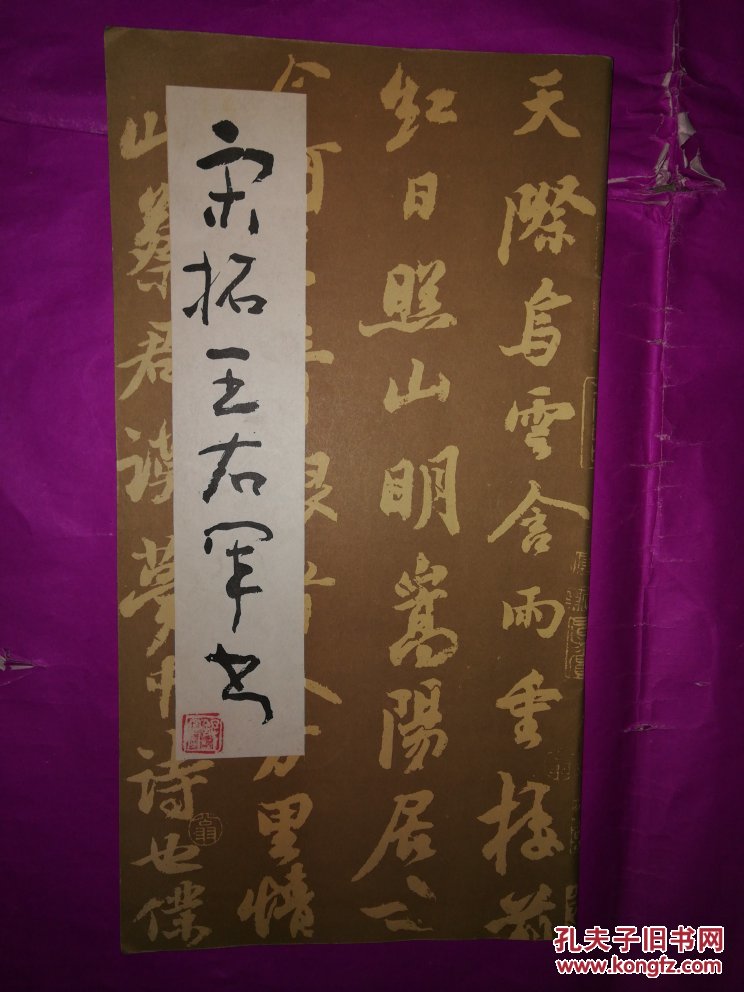 宋拓王右军书
天際烏雲含雨重樓前
紅日照山明嵩陽居士
今何在青眼看人万里情
山蔡君謨夢中詩也僕
孔夫子旧书网
www.kongfz.com